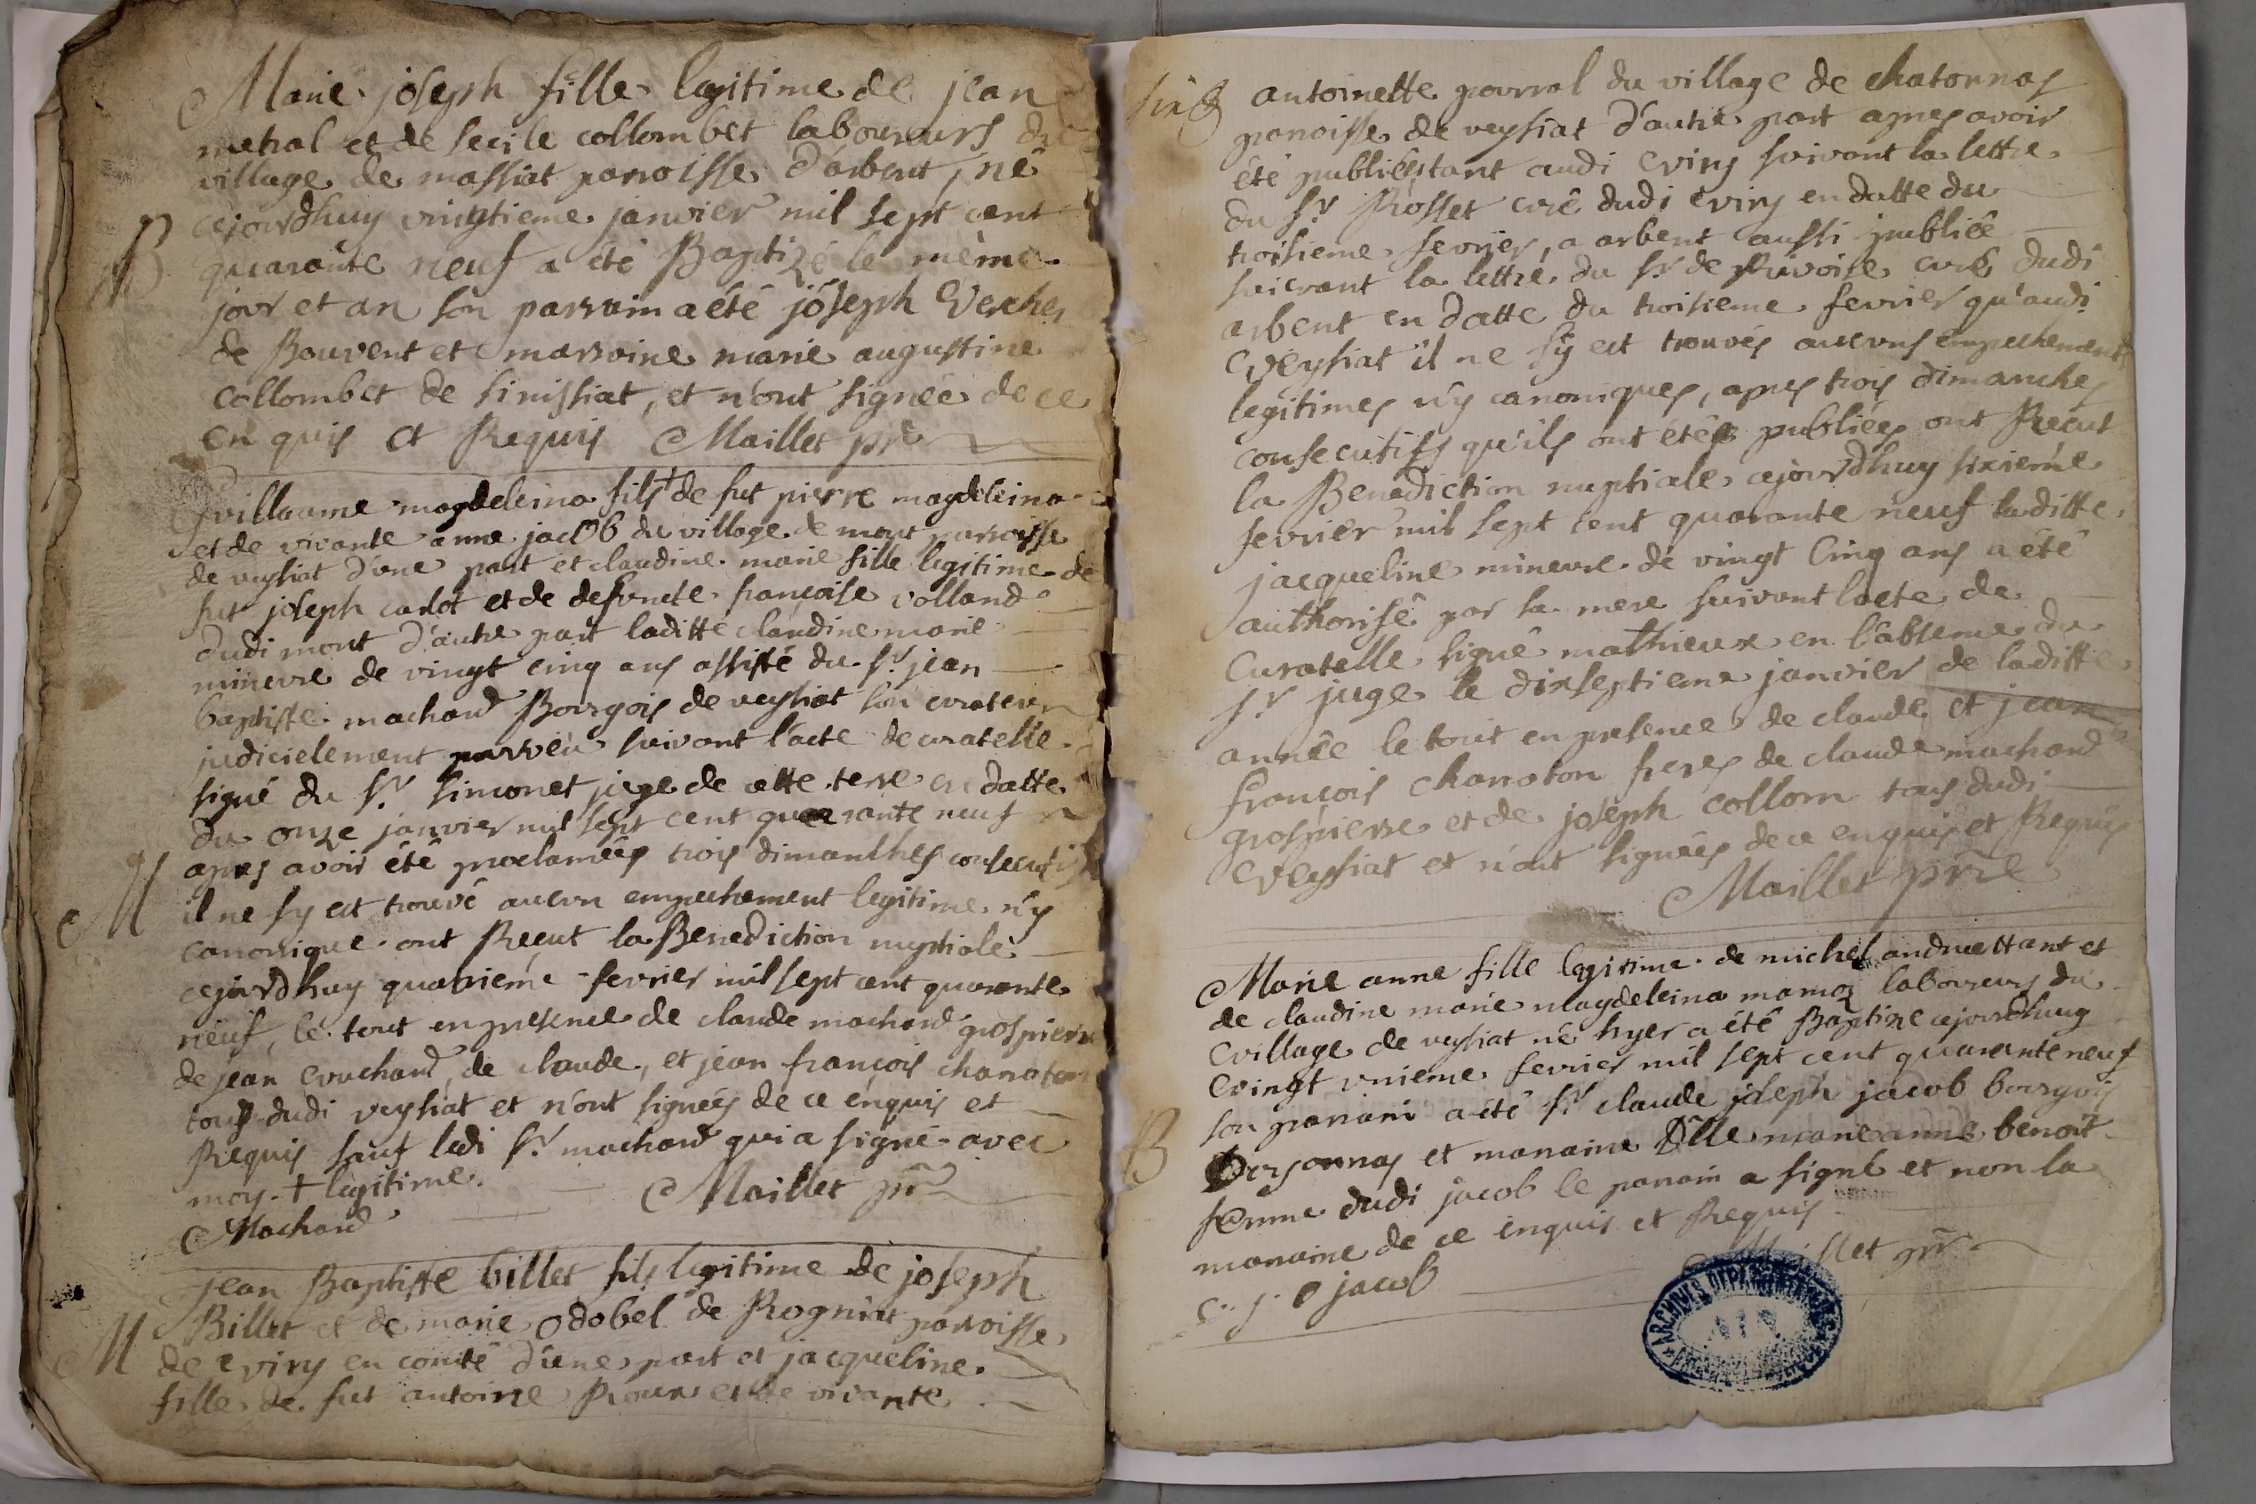 Marie joseph fille legitime de jean
metral et de secile collombet laboureurs du
village de massiat parroisse d'arbent, né
cejourdhuy vingtieme janvier mil sept cent
B
quarante neuf a été Baptizé le même
jour et an son parrain a été jóseph Vercher
de Bouvent et marraine marie augustine
collombet de sinissiat, et n'ont signéé de ce
en quis et Requis Maillet ptre
Guillaume magdeleina fils + de fut pierre magdeleina
et de vivante anne jacob du village de mont parroisse
de veysiat d'une part et claudine marie fille legitime de
fut joseph carlot et de defuncte françoise volland
dudi mont d'autre part laditte claudine marie
mineure de vingt cinq ans assisté du sr jean
baptiste machard Bourgois de veysiat son curateur
judicielement pourveu suivant l'acte de curatelle
signé du sr simonet juge de cette terre en datte
du onze janvier mil sept cent quarante neuf
apres avoir été proclaméés trois dimanches consecutifs
M
il ne sy est trouvé aucun empechement legitime n'y
canonique ont Reçut la Benediction nuptiale
cejourdhuy quatrieme fevrier mil sept cent quarante
neuf, le tout en presence de claude machard grospierre
de jean couchard, de claude, et jean françois chanaton
tous dudi veysiat et n'ont signéés de ce enquis et
Requis sauf ledi sr machard qui a signé avec
moy. + legitime.
Maillet ptre
Machard
jean Baptiste billet fils legitime de joseph
Billet et de marie odobel de Rogniat parroisse
M
de viry en comté d'une part et jacqueline
fille de fut antoine Roux et de vivante
sing
antoinette pourral du village de chatonnas
paroisse de veysiat d'autre part apres avoir
été publiéés tant audi viry suivant la lettre
du sr Rosset curé dudi viry en datte du
troisieme fevrier, a arbent aussi publiéé
suivant la lettre du sr de Rivoire curé dudi
arbent en datte du troisieme fevrier qu'audi
veysiat il ne sy est trouvés aucuns empechements
legitimes n'y canoniques, apres trois dimanches
consecutifs qu'ils ont étés publiéés ont Reçut
la Benediction nuptiale cejourdhuy sixieme
fevrier mil sept cent quarante neuf laditte
jacqueline mineure de vingt Cinq ans a été
authorisé par sa mere suivant lacte de
Curatelle signé mathieux en l'absence du
sr juge le dixseptieme janvier de laditte
année le tout en presence de claude et jean
françois chanaton freres de claude machard
grospierre et de joseph collom tous dudi
veysiat et n'ont signéés de ce enquis et Requis
Maillet ptre
Marie anne fille legitime de michel andruettant et
de claudine marie magdeleina mamoz laboureurs du
village de veysiat né hyer a été Baptizé cejourdhuy
vingt unieme fevrier mil sept cent quarante neuf
son parrain a été sr claude joseph jacob bourgois
B
Dersonnas et maraine Dlle marie anne benoit
femme dudi jacob le parain a signé et non la
maraine de ce enquis et Requis
Maillet ptre
c. j. jacob
ARCHIVES DEPARTEMENTALES
AIN